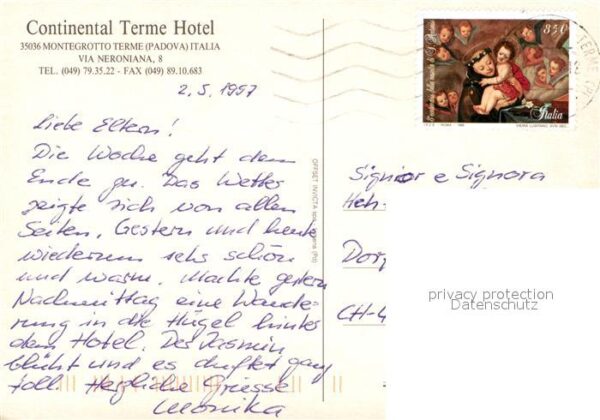 Continental Terme Hotel
35036 MONTEGROTTO TERME (PADOVA) ITALIA
VIA NERONIANA, 8
TEL. (049) 79.35.22 - FAX (049) 89.10.683
2.5.1997
Liebe Eltern!
Die Woche geht dem
Ende zu. Das Wetter
zeigte sich von allen
Seiten. Gestern und heute
wiederum sehr schön
und warm. Machte gestern
Nachmittag eine Wande-
rung in die Hügel hinter
dem Hotel. Der Jasmin
blüht und es duftet ganz
toll. Herzliche Griesse
Monika
OFFSET INVICTA
850
Italia
TERME
Signior e Signora
Heh
Dorf
CH-4
privacy protection
Datenschutz